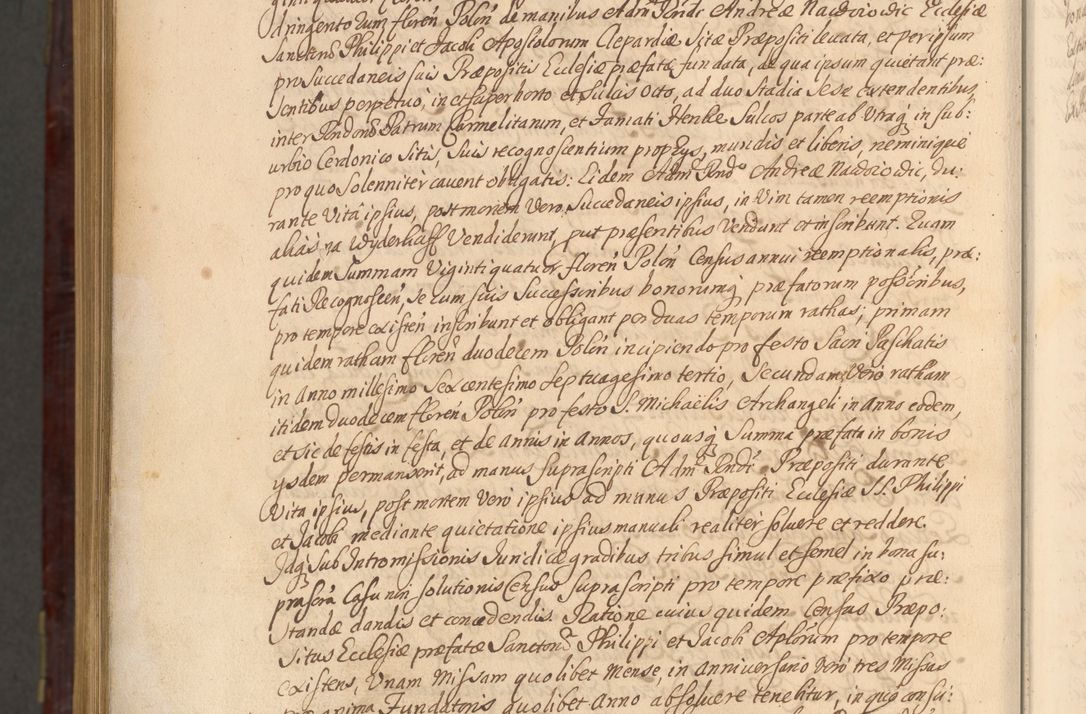 dringento rum floren̄ Polōn de manibus Adm Rendi Andreæ Naidoiodic Ecclesiæ
Sanctorū Philippi et Jacobi Apostolorum Clepardiæ Sitæ Præpositi levata, et per ipsum
pro Succedaneis suis Præpositis Ecclesiæ præfatæ fundata, de qua ipsum quietant præ:
sentibus perpetuo, in et super horto et Sulcis octo, ad duo Stadia Sese extendentibus,
inter Rendorū Patrum Carmelitarum, et Famati Henke Sulcos parte ab Utraq in sub:
urbio Cerdonico Sitis, Suis recognoscentium proprys, mundis et liberis, neminique
pro quo Solenniter cavent obligatis: Eidem Adm Rendo Andreæ Naidoiodic, du:
rante Vitâ ipsius, post mortem Vero, Succedaneis ipsius, in Vim tamen reemptionis
alias na Wyderkaff Vendiderunt, put præsentibus Vendunt et inscribunt. Quam
quidem Summam Viginti quatuor floren̄ Polōn Census annui reemptionalis, præ:
fati Recognoscen̄, se cum suis Successoribus bonorumq præfatorum possōribus,
pro tempore existen̄ inscribunt et obligant per duas temporum rathas; primam
quidem ratham floren̄ duodecem Polōn incipiendo pro festo Sacri Paschatis
in Anno millesimo Sexcentesimo Septuagesimo tertio, Secundam Vero ratham
itidem duodecem floren̄ Polōn pro festo S. Michaëlis Archangeli in Anno eodem,
et sic de festis in festa, et de Annis in Annos, quousq Summa præfata in bonis
ysdem permanserit, ad manus suprascripti Adm Rendi Præpositi durante
Vita ipsius, post mortem Vero ipsius ad manus Præpositi Ecclesiæ S.S. Philippi
et Jacobi mediante quietatione ipsius manuali realiter solvere et reddere.
Idq Sub Intromissionis Juridicæ gradibus tribus simul et semel in bona su:
prascra Casu non solutionis Census Suprascripti pro tempore præfixo præ:
standæ dandis et concedendis Ratione cuius quidem Census Præpo:
situs Ecclesiæ præfatæ Sanctorū Philippi et Jacobi Aplorum pro tempore
existens, Unam Missam quolibet Mense, in Anniversario Vero tres Missas
pro anima Fundatoris quolibet Anno absolvere tenebitur, in quo consci: